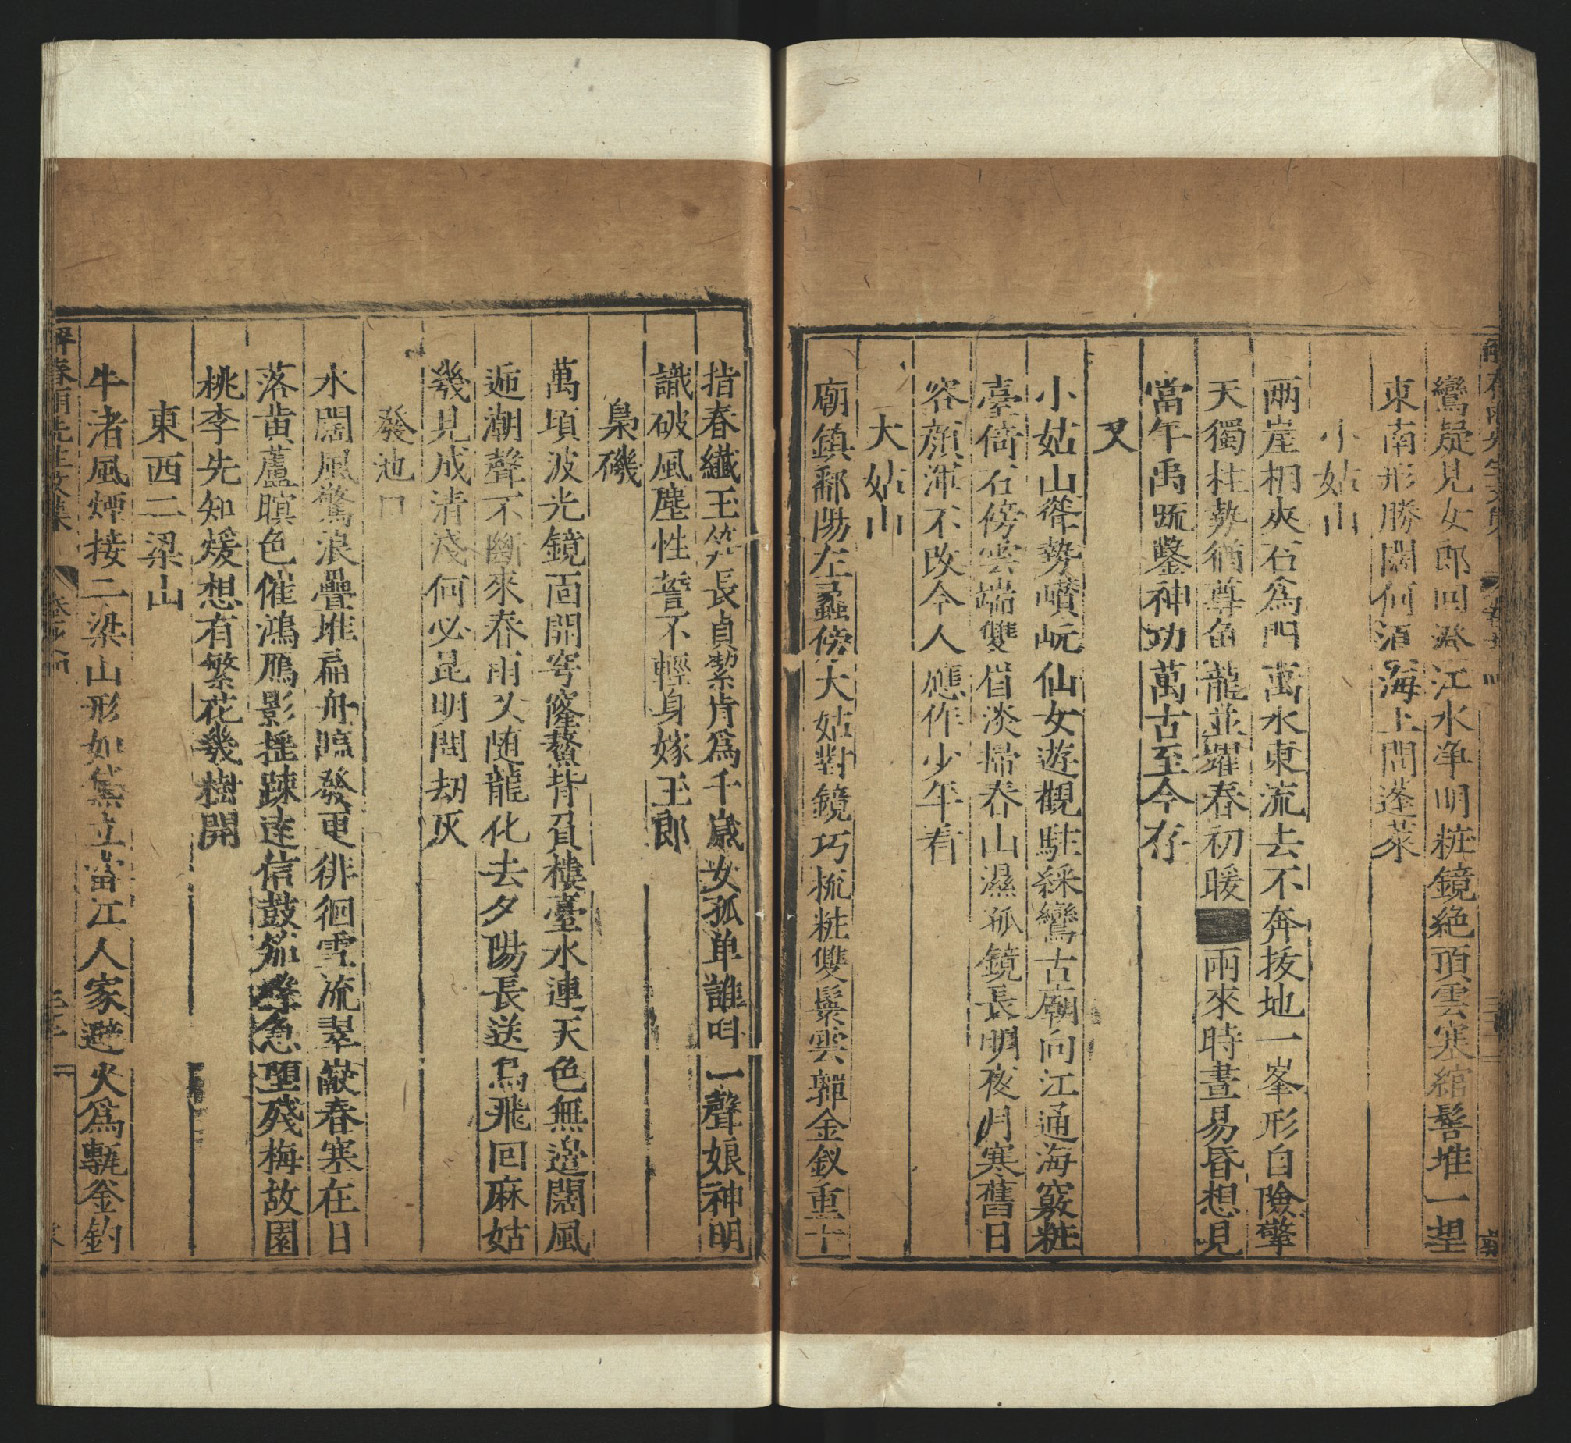 鸞疑見女郎回深江水净明粧鏡絶頂雲寒綰髻堆一望
東南形勝闊何須海上問蓬萊
小姑山
兩崖相夾石爲門萬水東流去不奔拔地一峯形自險擎
天獨柱勢猶尊魚龍並躍春初暖雨來時晝易昏想見
當年禹䟽鑿神功萬古至今存
又
小姑山聳勢巑岏仙女遊觀駐綵鸞古廟向江通海竅粧
臺倚石傍雲端雙眉淡掃春山濕孤鏡長明夜月寒舊日
容顔渾不改今人應作少年看
大姑山
廟鎮鄱陽左蠡傍大姑對鏡巧梳粧雙鬟雲嚲金釵重十
指春纎玉笋長貞絜肯爲千歲女孤单誰呌一聲娘神明
識破風塵性誓不輕身嫁王郎
梟磯
萬頃波光鏡面開穹窿鰲背負樓臺水連天色無邉闊風
逓潮聲不斷來春雨又随龍化去夕陽長送鳥飛回麻姑
幾見成清淺何必昆明問刼灰
發池口
水闊風驚浪疊堆扁舟臨發更徘徊雪流翠巘春寒在日
落黄蘆暝色催鴻鴈影揺踈遠信鼓笳聲急墮殘梅故園
桃李先知煖想有繁花幾樹開
東西二梁山
牛渚風煙接二梁山形如黛立當江人家避火爲甎釡釣